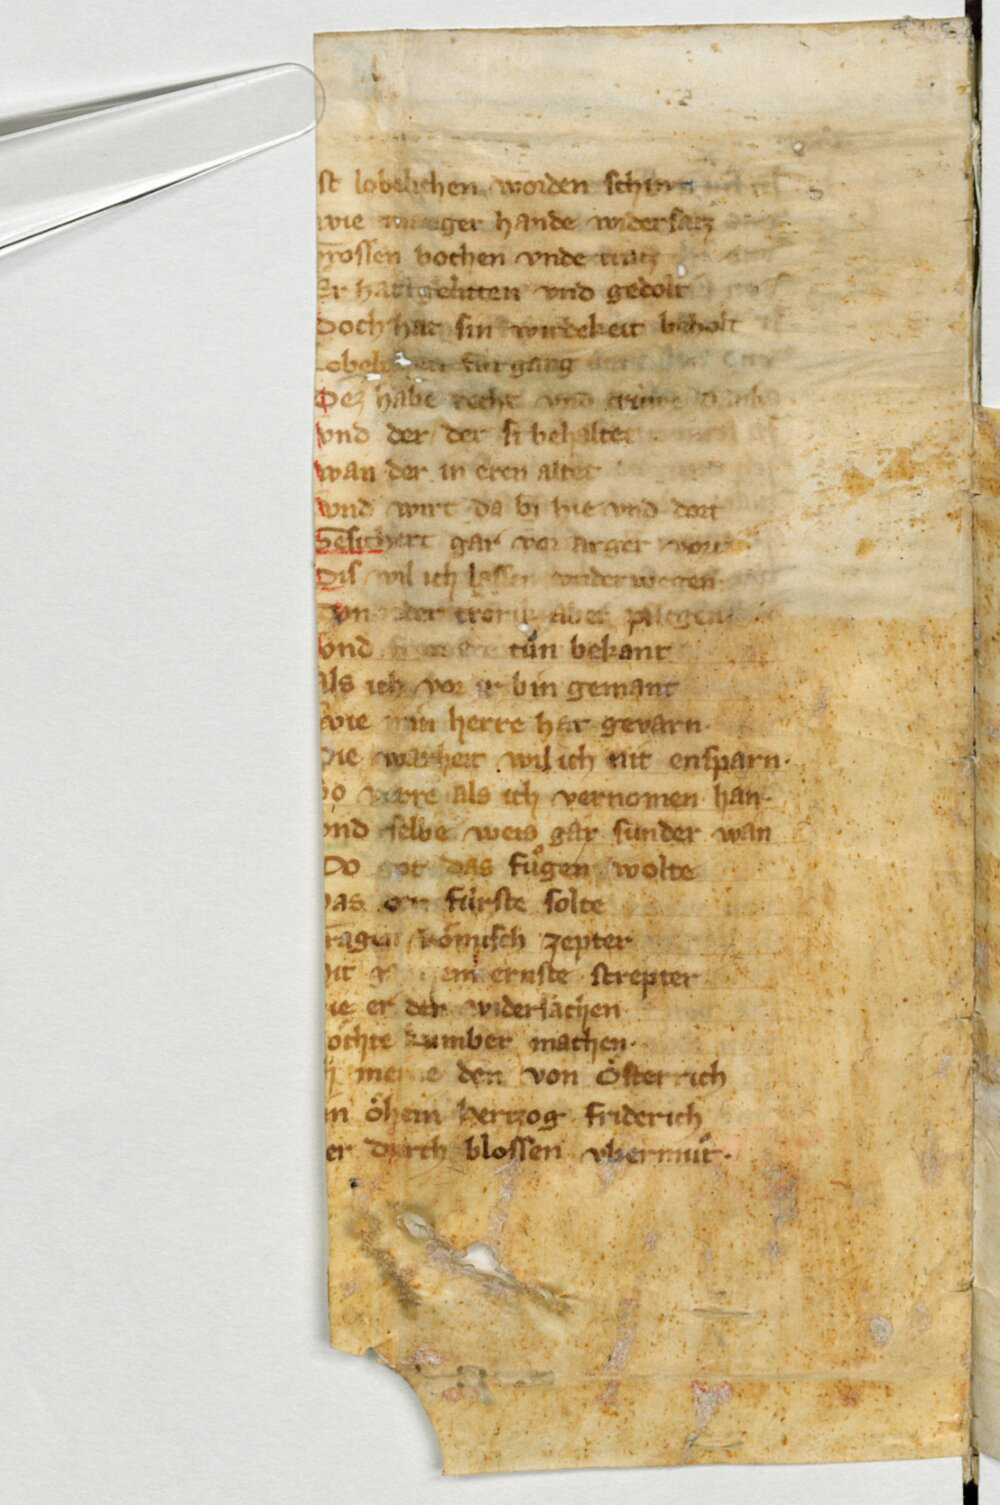 st lobelichen worden schin
wie maniger hande widersatz
grossen bochen vnde tratz
Er hat gelitten vnd gedolt
Doch hat sin wirdekeit beholt
Lobelichen fúrgang
Dez habe recht vnd trúwe
vnd der der si behaltet
wan der in eren altet
vnd wirt da bi hie vnd dort
Gesichert gar vor arger wort
Dis wil ich lassen vnder wegen
der cronik aber pflegen
vnd tůn bekant
als ich vor ir bin gemant
wie min herre hat gevarn.
Die warheit wil ich nit ensparn.
So verre als ich vernomen han.
vnd selbe weis gar sunder wan
Do got das fůgen wolte
Das fúrste solte
Tragen rómisch zepter
Mit ernste strepter
ie er den widersachen
ochte kumber machen.
h meine den von Österrich
in öhein hertzog friderich
er durch blossen vbermůt.